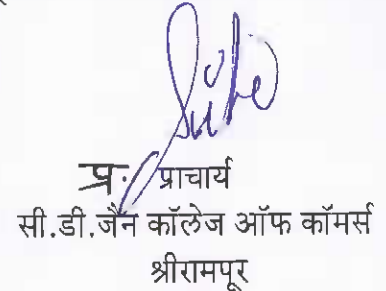 प्र. प्राचार्य
सी.डी.जैन कॉलेज ऑफ कॉमर्स
श्रीरामपूर